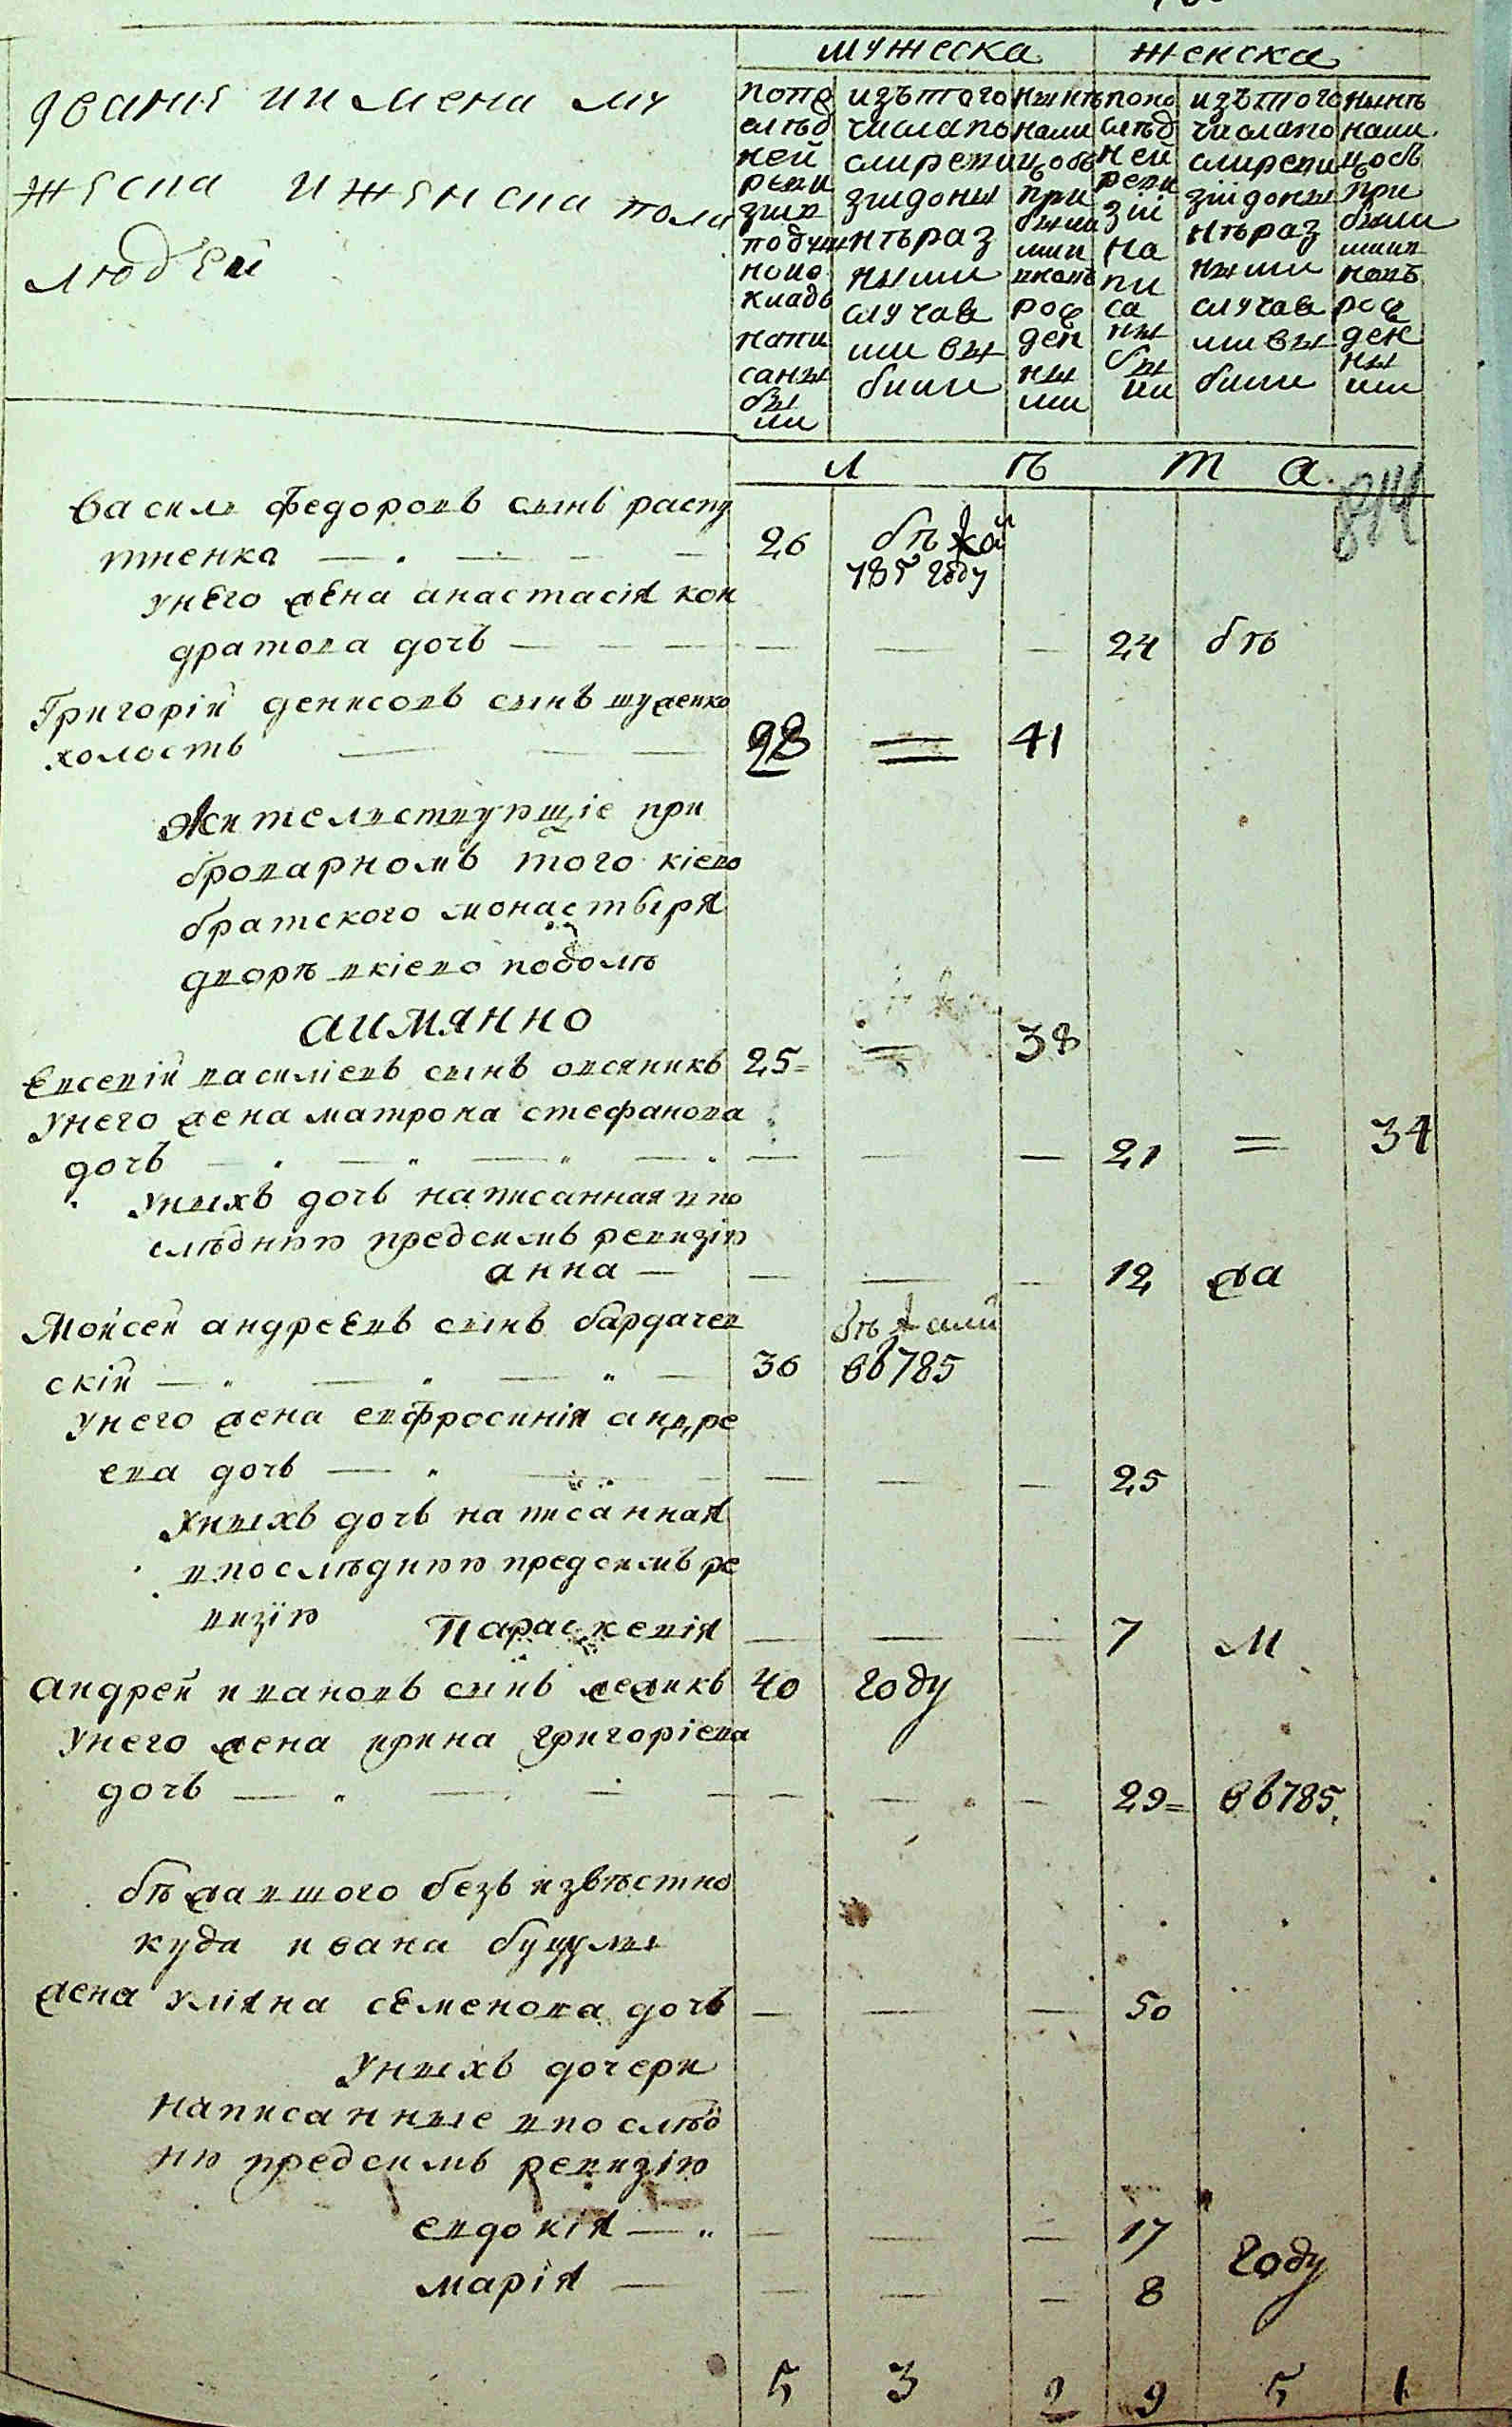 мужеска женска
звания иимена му
жеска иженска пола
людей
попо
слѣд
ней
реви
зіи
подуш
ного
кладѣ
напи
саны
бы
ли
изътого
числапо
слиреви
зіидоны
нѣраз
ными
случая
ми вы
были
нынѣ
нали
цо съ
при
были
ми
ивовь
рож
ден
ны
ми
попо
слѣд
ней
реви
зіи
на
пи
са
ны
бы
ли
изътого
числапо
слиреви
зіидоны
нѣраз
ными
случая
ми вы
были
нынѣ
нали
цо съ
при
были
ми и
новъ
рож
ден
ны
ми
л ѣ т а
Василь федоровъ сынъ распу
тненко 26 бѣжал
785 году
унего жена анастасія кон
дратова дочь 24 бѣ
Григорій денисовъ сынъ шуленко
холостъ 28 41
Жительствующіе при
броварномъ того кіево
братского монастыря
дворѣ вкіево подолѣ
аимянно
Евсевій василіевъ сынъ овсяникъ 25 38
унего жена матрона стефанова
дочь 21 34
унихъ дочь написанная впо
слѣднюю предсимъ ревизію
анна 12 жа
Мойсей андреевъ сынъ бардачев
скій 36 въ785
унего жена евфросинія андре
ева дочь 25
унихъ дочь написанная
впослѣднюю предсимъ ре
визію Параскевія 7 ли
андрей ивановъ сынъ 40 году
унего жена ирина григоріева
дочь 29 въ785
бѣжавшого безъ извѣстно
куда ивана
жена уліяна семенова дочь 50
унихъ дочери
написанные впослѣд
ню предсимъ ревизію
евдокія 17 году
марія 8
5 3 2 9 5 1